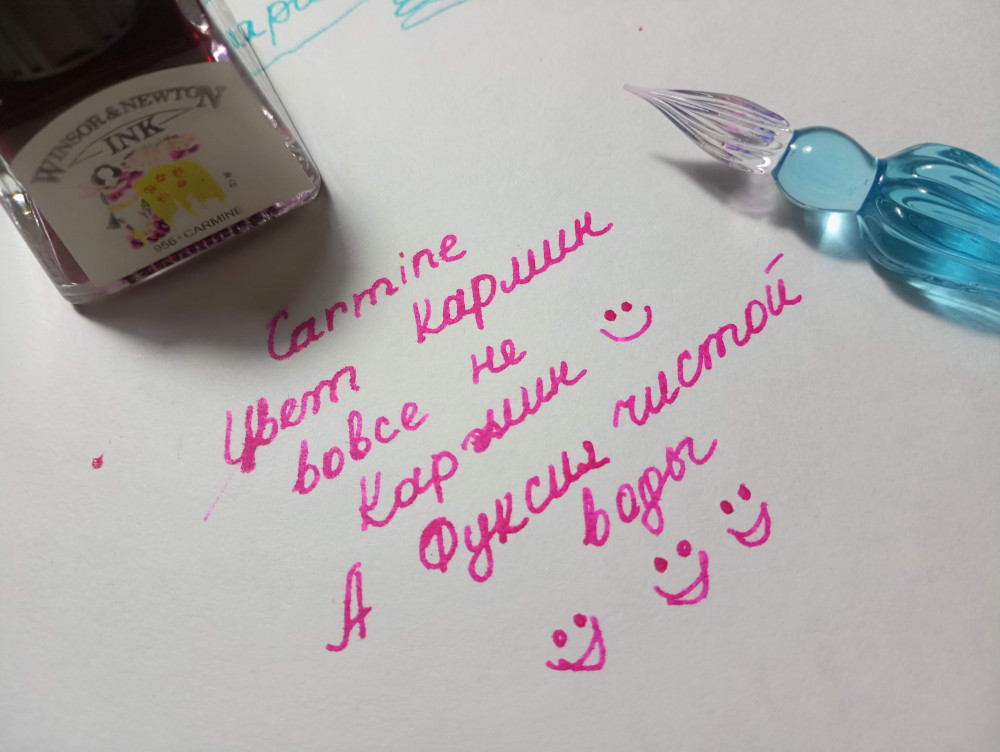 WINSOR & NEWTON
INK
956 • CARMINE
Carmine
Цвет кармин
вовсе не
Кармин
А Фуксия чистой
воды